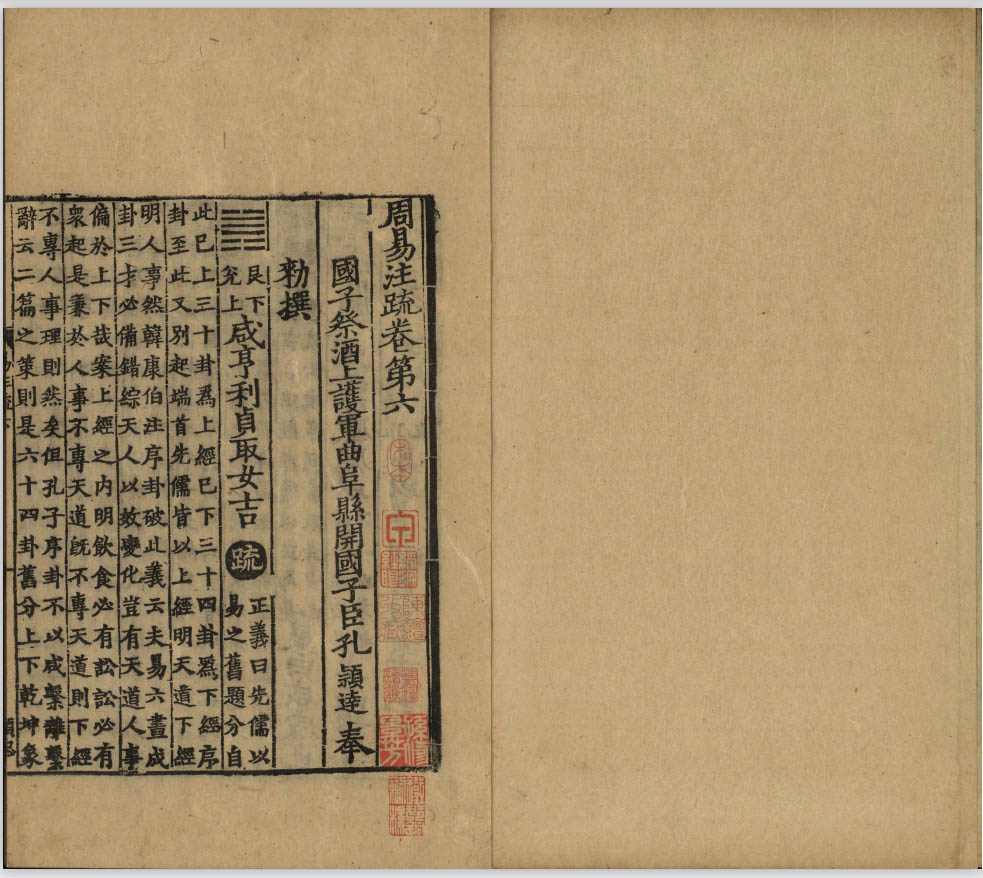 周易注疏卷第六
國子祭酒上護軍曲阜縣開國子臣孔穎逹奉
勑撰
艮下
兊上
咸亨利貞取女吉
疏
正義曰先儒以
易之舊題分自
此已上三十卦爲上經已下三十四卦爲下經序
卦至此又別起端首先儒皆以上經明天道下經
明人事然韓康伯注序卦破此義云夫易六畫成
卦三才必備錯綜天人以效變化豈有天道人事
偏於上下哉案上經之内明飲食必有訟訟必有
衆起是兼於人事不專天道旣不專天道則下經
不專人事理則然矣但孔子序卦不以咸繫離繫
辭云二篇之策則是六十四卦舊分上下乾坤象